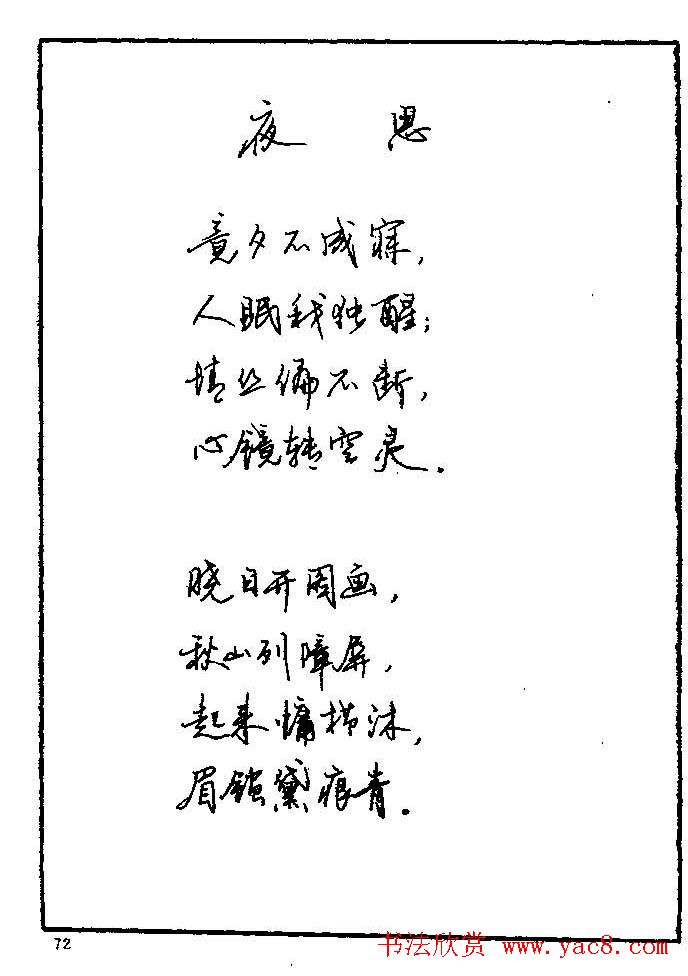 夜 思
竟夕不成寐，
人眠我独醒；
情丝偏不断，
心镜转空灵．
晓日开图画，
秋山列障屏，
起来慵栉沐，
眉锁黛痕青．
72
书法欣赏 www.yac8.com